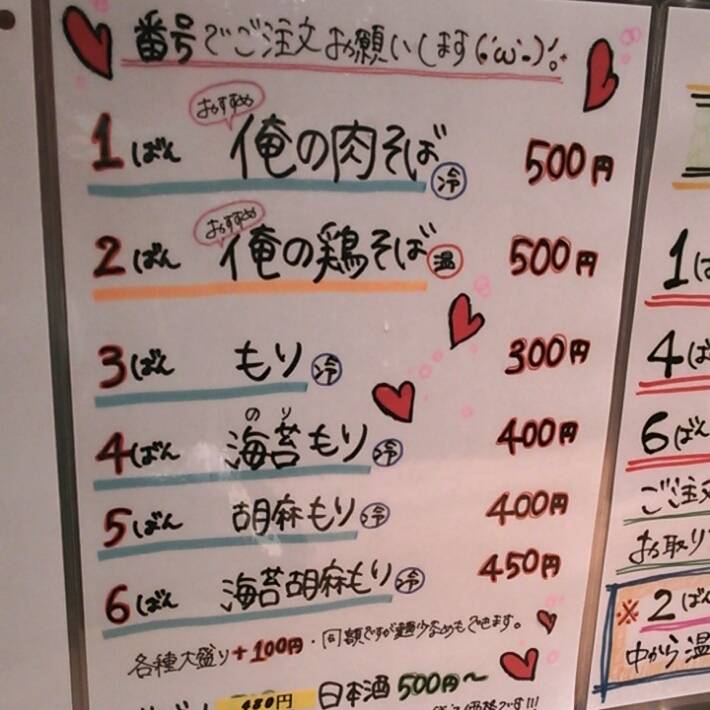 番号でご注文お願いします(´・ω・`)
おすすめ
1ばん 俺の肉そば 冷 500円
おすすめ
2ばん 俺の鶏そば 温 500円
3ばん もり 冷 300円
のり
4ばん 海苔もり 冷 400円
5ばん 胡麻もり 冷 400円
6ばん 海苔胡麻もり 冷 450円
各種大盛り+100円・同額ですが麺少なめもできます。
480円 日本酒 500円〜
価格です!!!
1ば
4ば
6ばん
ご注文
お取り
※2ばん
中から温